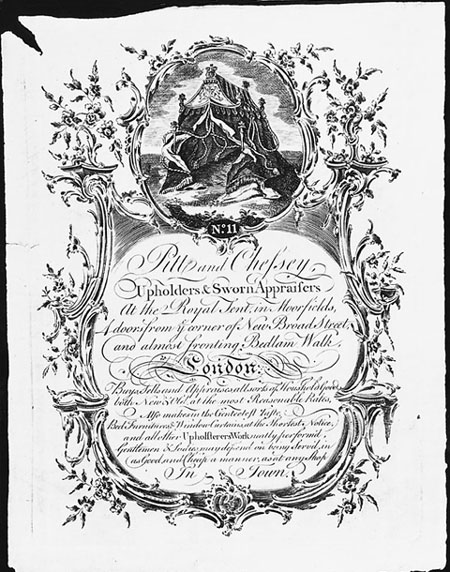 No. 11
Pitt and Chessey
Upholders & Sworn Appraisers
At the Royal Tent, in Moorfields,
4 doors from ye corner of New Broad Street,
and almost fronting Bedlam Walk.
London.
Buys, Sells and Appraises all sorts of Houshold Goods,
both New & Old, at the most Reasonable Rates,
Also makes in the Genteelest Taste
Bed, Furnitures & Window Curtains, at the Shortest Notice,
and all other Upholsterers Work neatly perform'd
Gentlemen & Ladies may depend on being Serv'd in
as Good and Cheap a manner, as at any Shop
In Town.